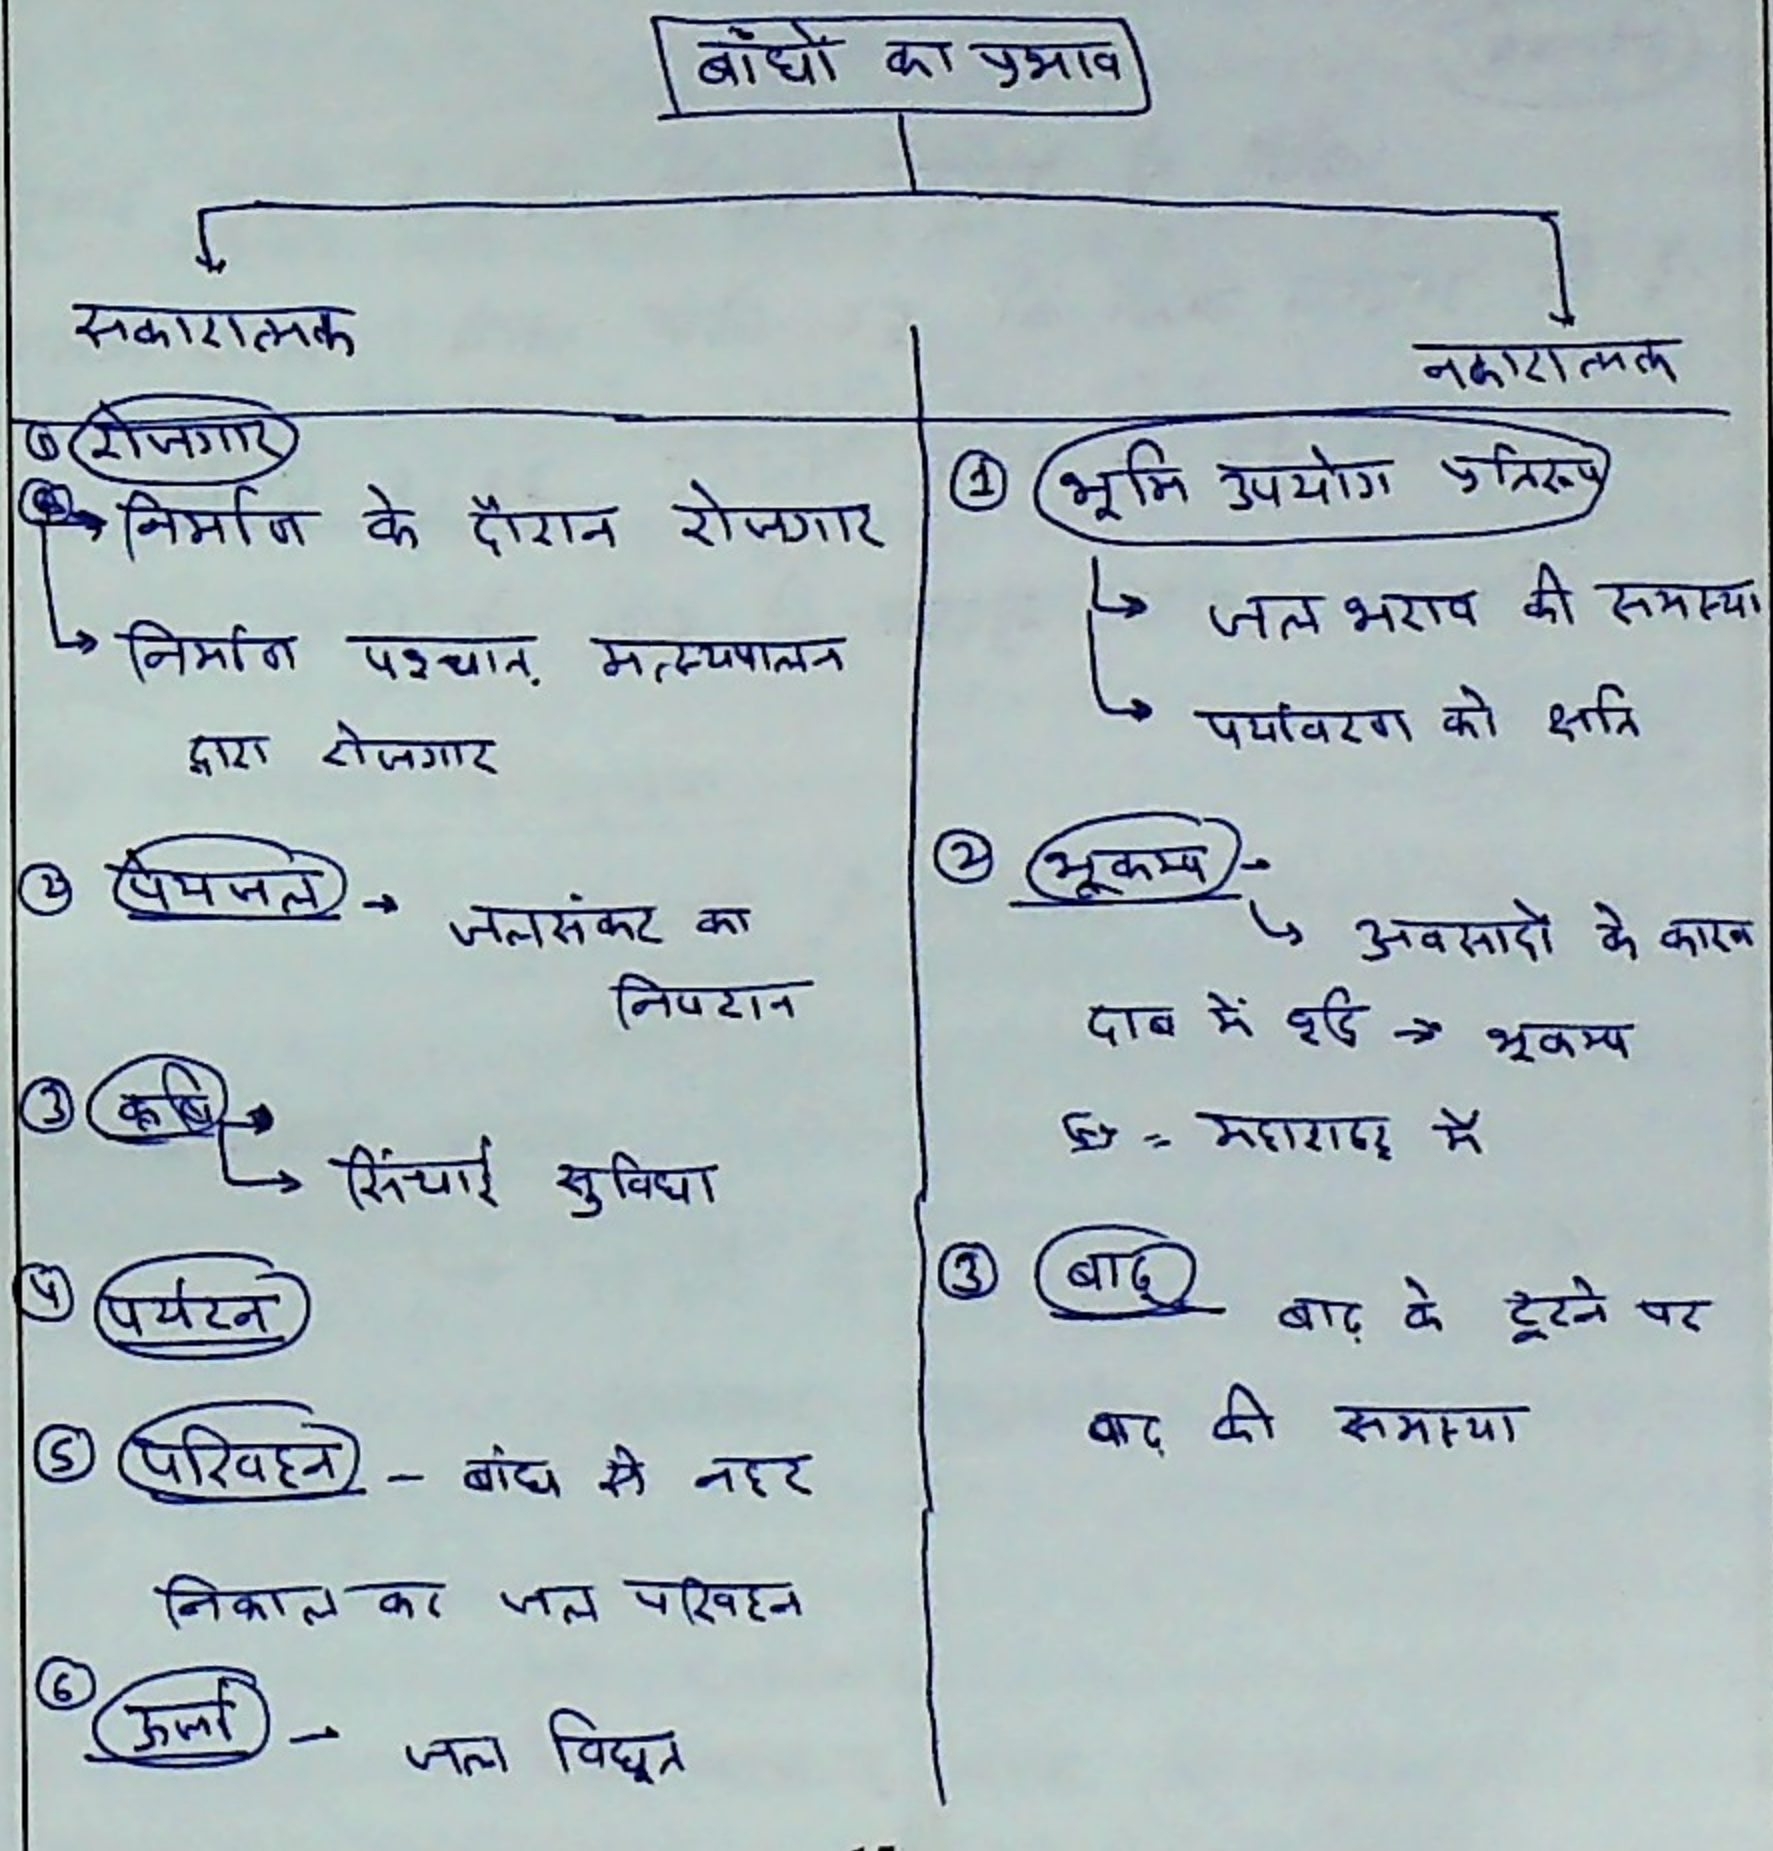 बाँधों का प्रभाव
सकारात्मक
नकारात्मक
① रोजगार
→ निर्माण के दौरान रोजगार
↳ निर्माण पश्चात् मत्स्यपालन
द्वारा रोजगार
② पेयजल → जलसंकट का
निपटान
③ कृषि →
↳ सिंचाई सुविधा
④ पर्यटन
⑤ परिवहन - बांध से नहर
निकाल कर जल परिवहन
⑥ ऊर्जा → जल विद्युत
① भूमि उपयोग प्रतिरूप
↳ जल भराव की समस्या
↳ पर्यावरण को क्षति
② भूकम्प -
↳ अवसादों के कारण
दाब में वृद्धि → भूकम्प
= महाराष्ट्र में
③ बाढ़ बाढ़ के टूटने पर
बाढ़ की समस्या